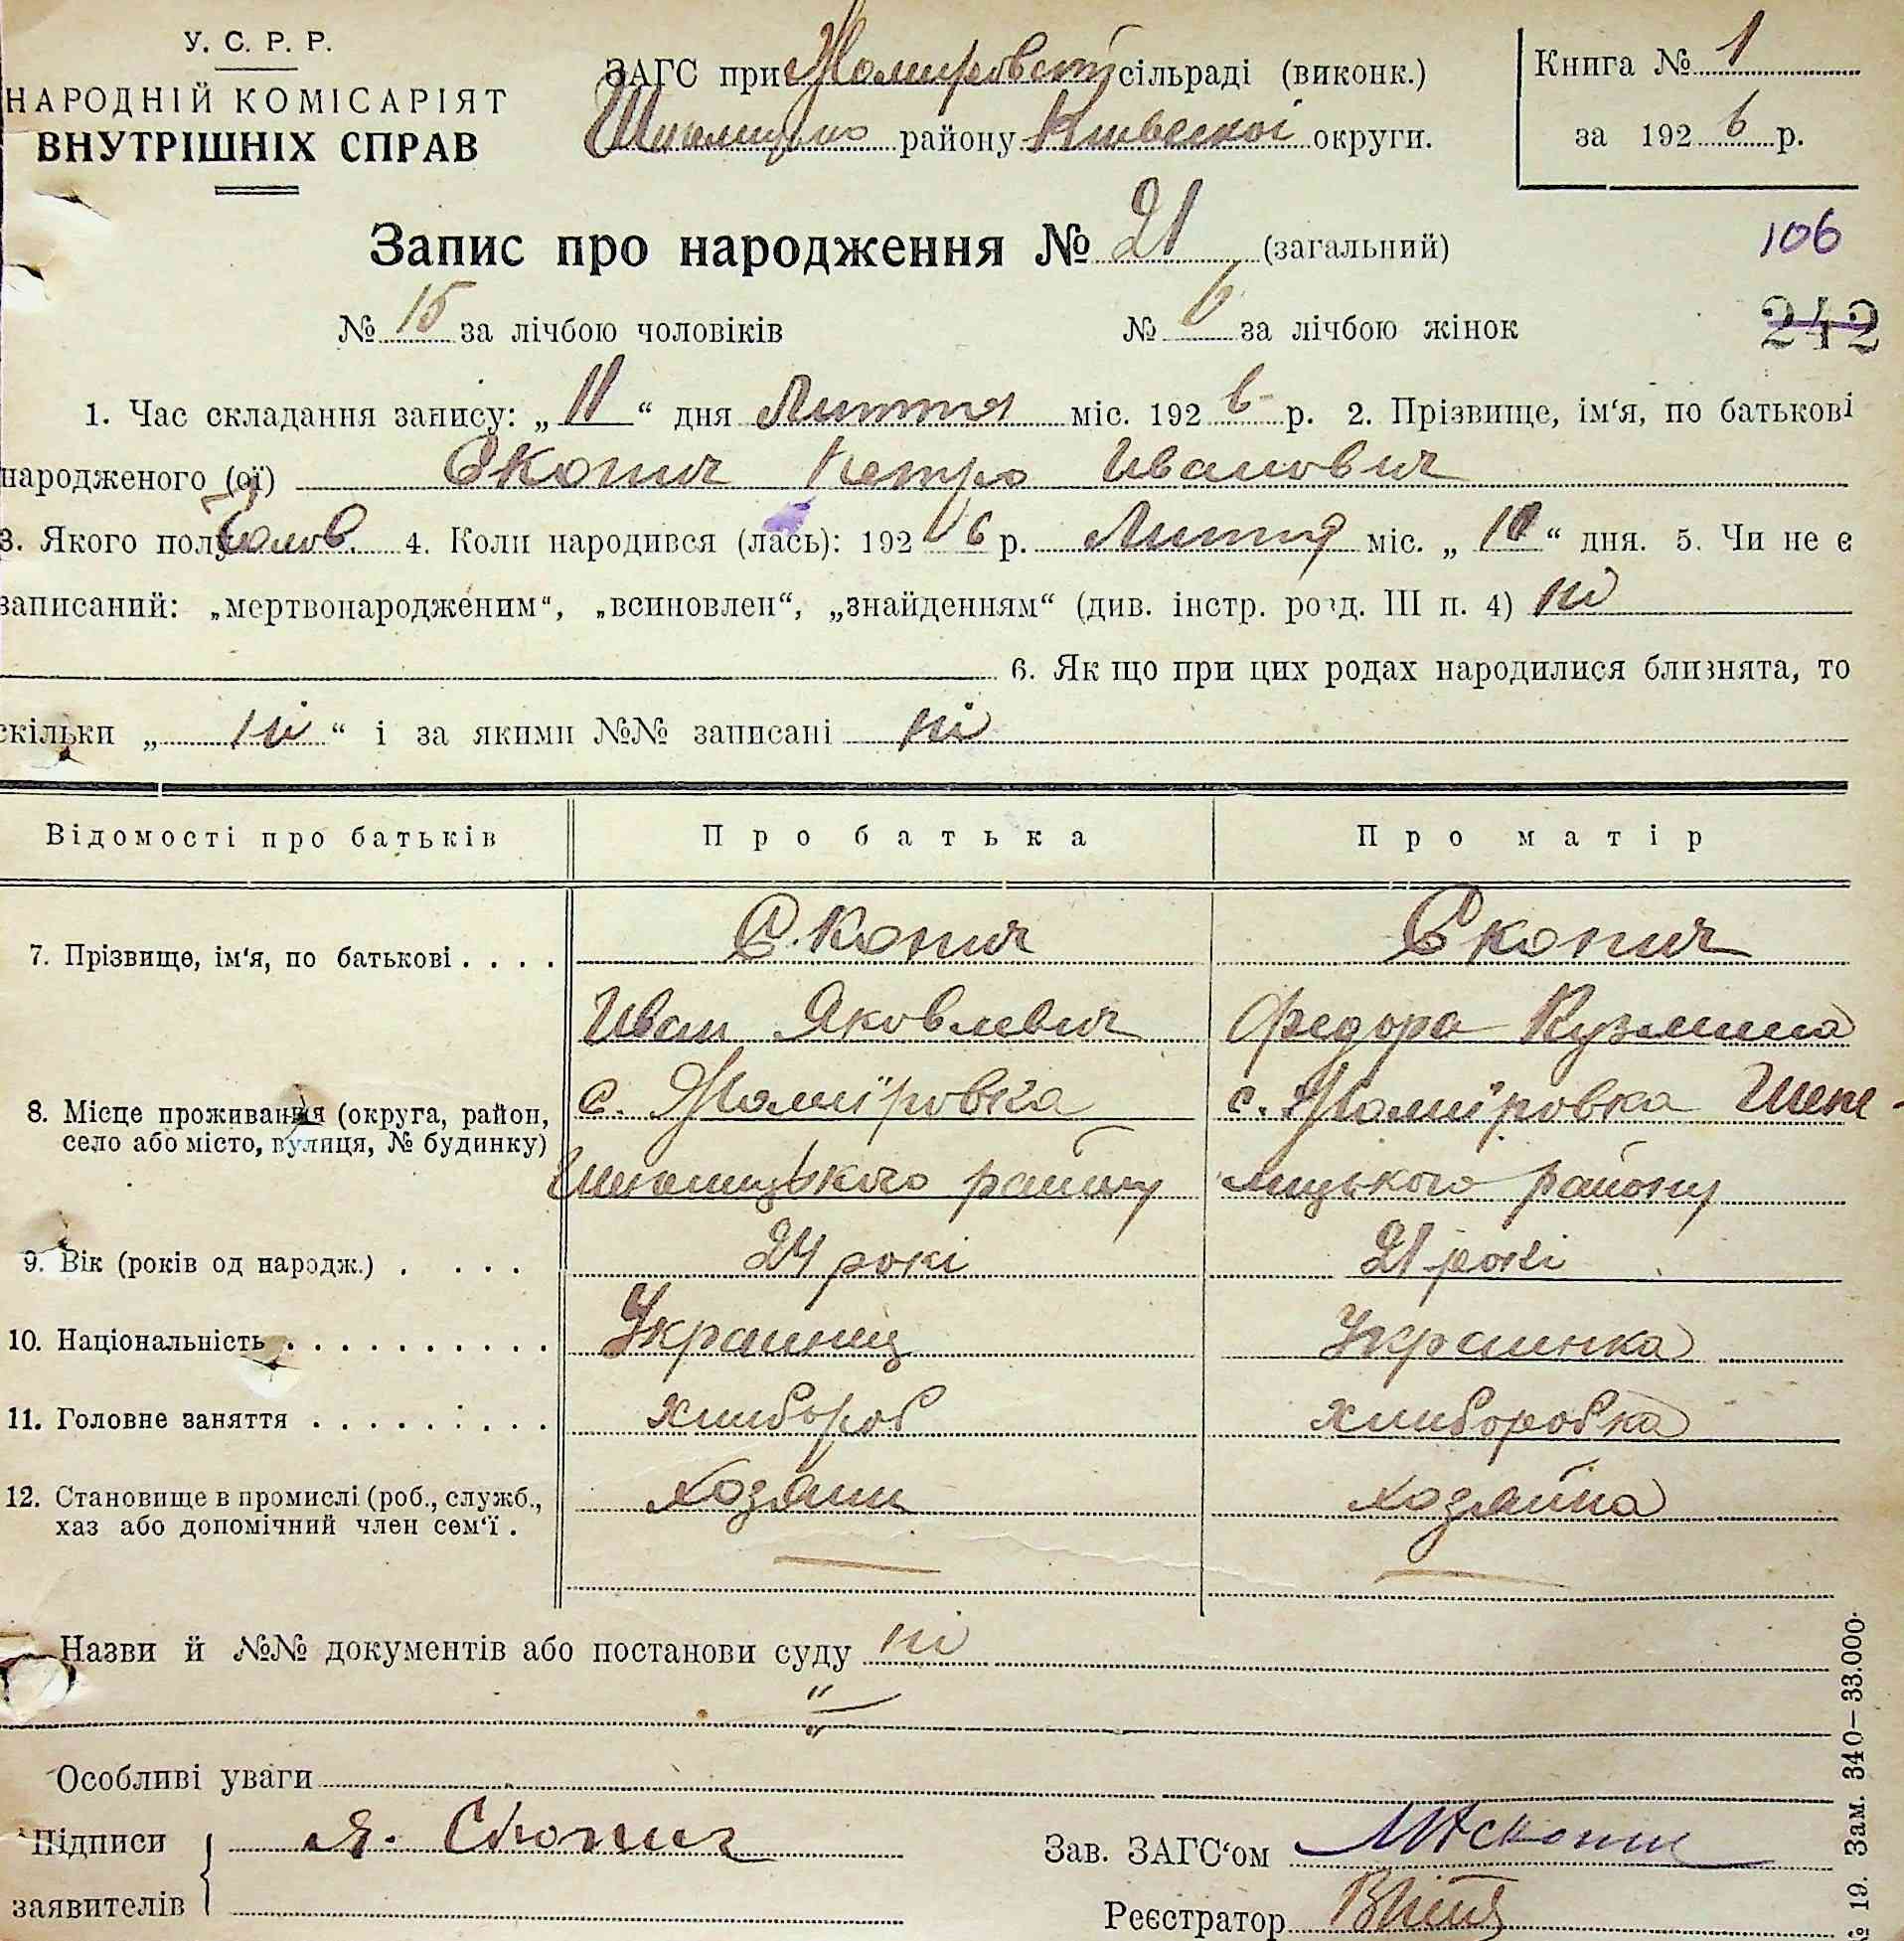 У. С. Р. Р.
НАРОДНІЙ КОМІСАРІЯТ
ВНУТРІШНІХ СПРАВ
ЗАГС при сільраді (виконк.)
району Киівської округи.
Книга № 1
за 192 6 р.
Запис про народження № 21 (загальний)
106
№ 15 за лічбою чоловіків № 6 за лічбою жінок
242
1. Час складання запису: „ 11 “ дня Лютня міс. 192 6 р. 2. Прізвище, ім‘я, по батькові
народженого (ої) Скопич Петро Иванович
3. Якого полу чолов. 4. Коли народився (лась): 192 6 р. Лютня міс. „ 10 “ дня. 5. Чи не є
записаний: „мертвонародженим“, „всиновлен“, „знайденням“ (див. інстр. розд. III п. 4) ні
6. Як що при цих родах народилися близнята, то
скільки „ ні “ і за якими №№ записані ні
Відомості про батьків Про батька Про матір
7. Прізвище, ім‘я, по батькові . . . . Скопич Скопич
Иван Яковлевич Федора Кузмина
8. Місце проживання (округа, район,
село або місто, вулиця, № будинку)
с. Жоміровка с. Жоміровка Шепе-
району лицького району
9. Вік (років од народж.) . . . . 24 рокі 21 рокі
10. Національність . . . . . . . . . . . Украинец Украинка
11. Головне заняття . . . . . . . . . хлибороб хлиборобка
12. Становище в промислі (роб., служб.,
хаз або допомічний член сем‘ї .
хозяин хозяйка
Назви й №№ документів або постанови суду ні
Особливі уваги
Підписи
заявителів
Я. Скопич
Зав. ЗАГС‘ом
Реєстратор
№ 19. Зам. 340—33.000.